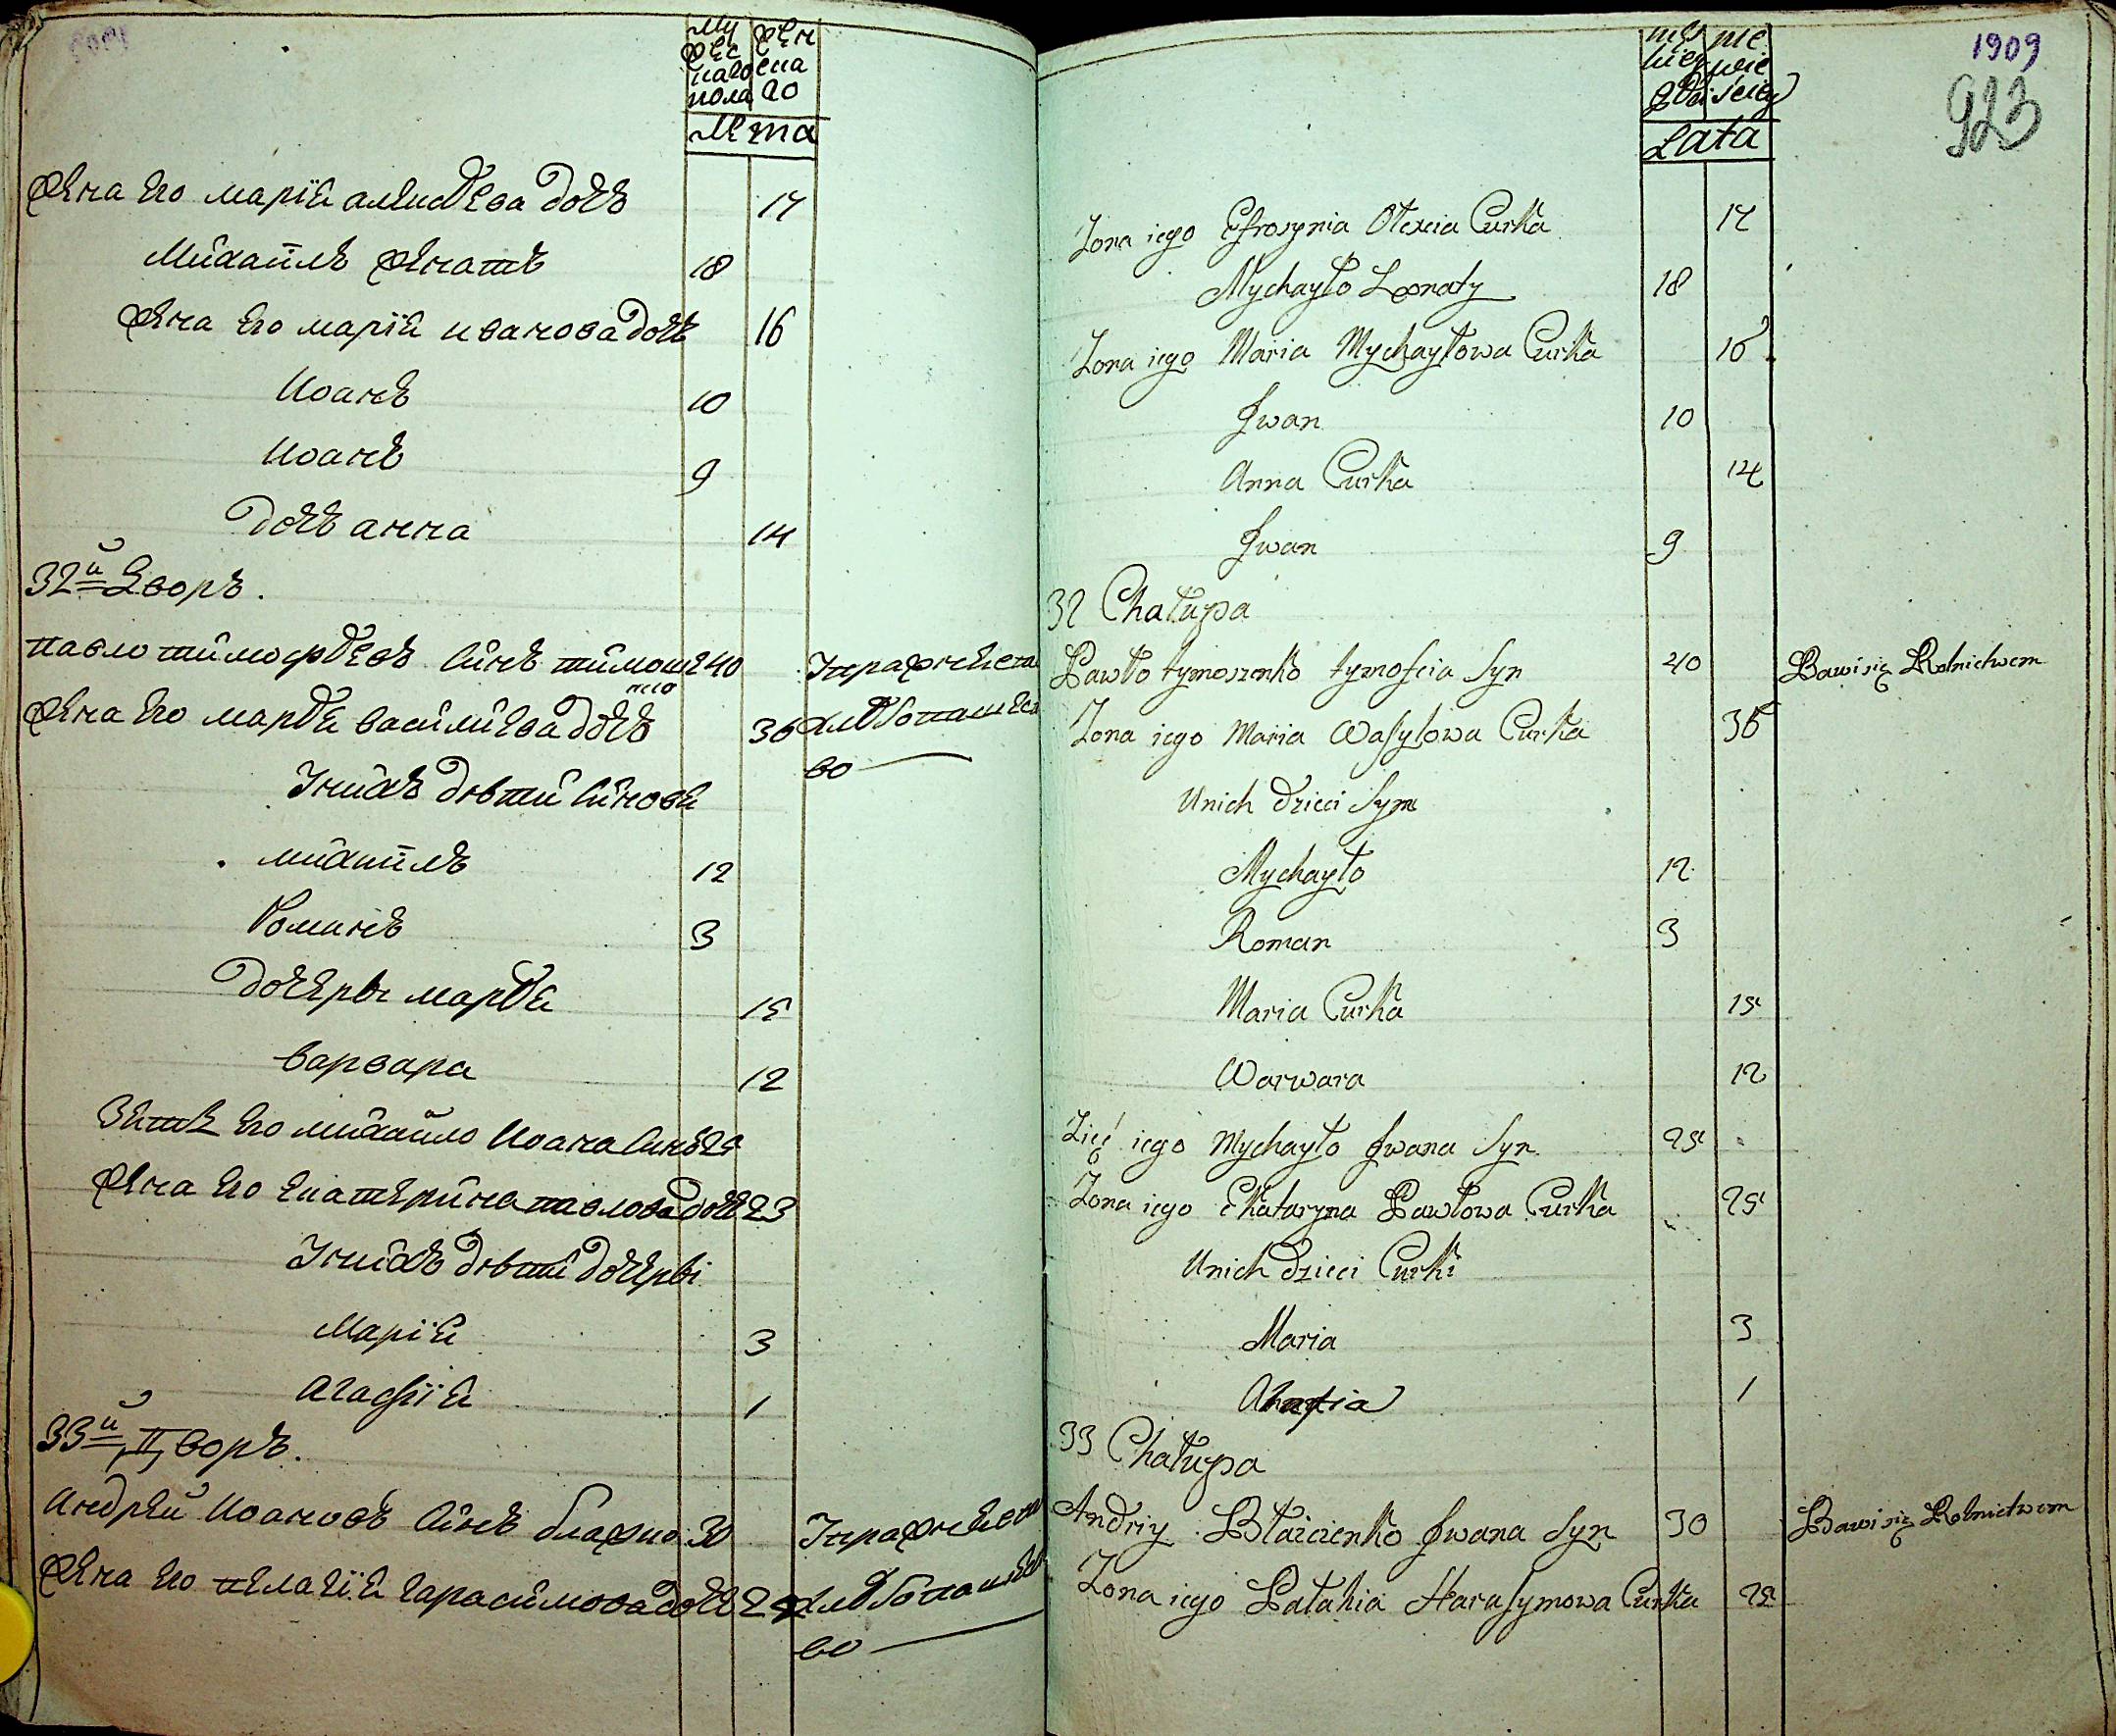 Му
жес
каго
пола
жен
ска
го
Лета
Жена Его Марїя алексѣева дочъ 17
Михайлъ женатъ 18
Жена Его Марїя иванова дочъ 16
Иоанъ 10
Иоанъ 9
Дочъ анна 14
32й Дворъ.
Павло тимофѣевъ синъ тимош 40
Жена Его марѣя василиева дочъ 36
Уних дѣти синовя
михайлъ 12
Романъ 3
дочеры марѣя 15
варвара 12
Зять Его михайло Иоана синъ 25
Жена Его Екатерина павлова дочъ 23
Уних дѣти дочеры
Марїя 3
Агафїя 1
33й Дворъ.
Андрей Иоановъ синъ 30
Жена Его пелагїя гарасимова дочъ
хлѣбопашес
во
хлѣбопашес
во
1909
923
Lata
Zona iego Efrosynia Olexeia Curka 17
Mychayło Zonaty 18
Zona iego Maria Mychayłowa Curka 16
Jwan 10
Anna Curka 14
Jwan 9
32 Chałupa
Pawło tymoszenko tymofeia Syn 40 Bawi się Rolnictwem
Zona iego Maria Wasylowa Curka 36
Unich dzieci Syni
Mychayło 12
Roman 3
Maria Curka 15
Warwara 12
Zięć iego Mychayło Jwana Syn 25
Zona iego Ekataryna Pawłowa Curka 25
Unich dzieci Curki
Maria 3
1
33 Chałupa
Andriy Jwana Syn 30 Bawi się Rolnictwem
Zona iego Pałahia Harasymowa Curka 25